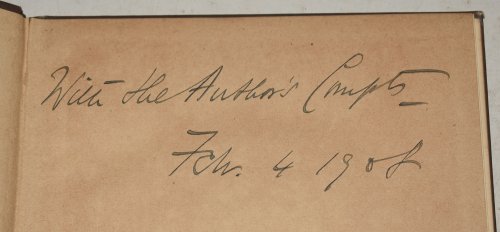 With the Author's Compts
Feb. 4 1908